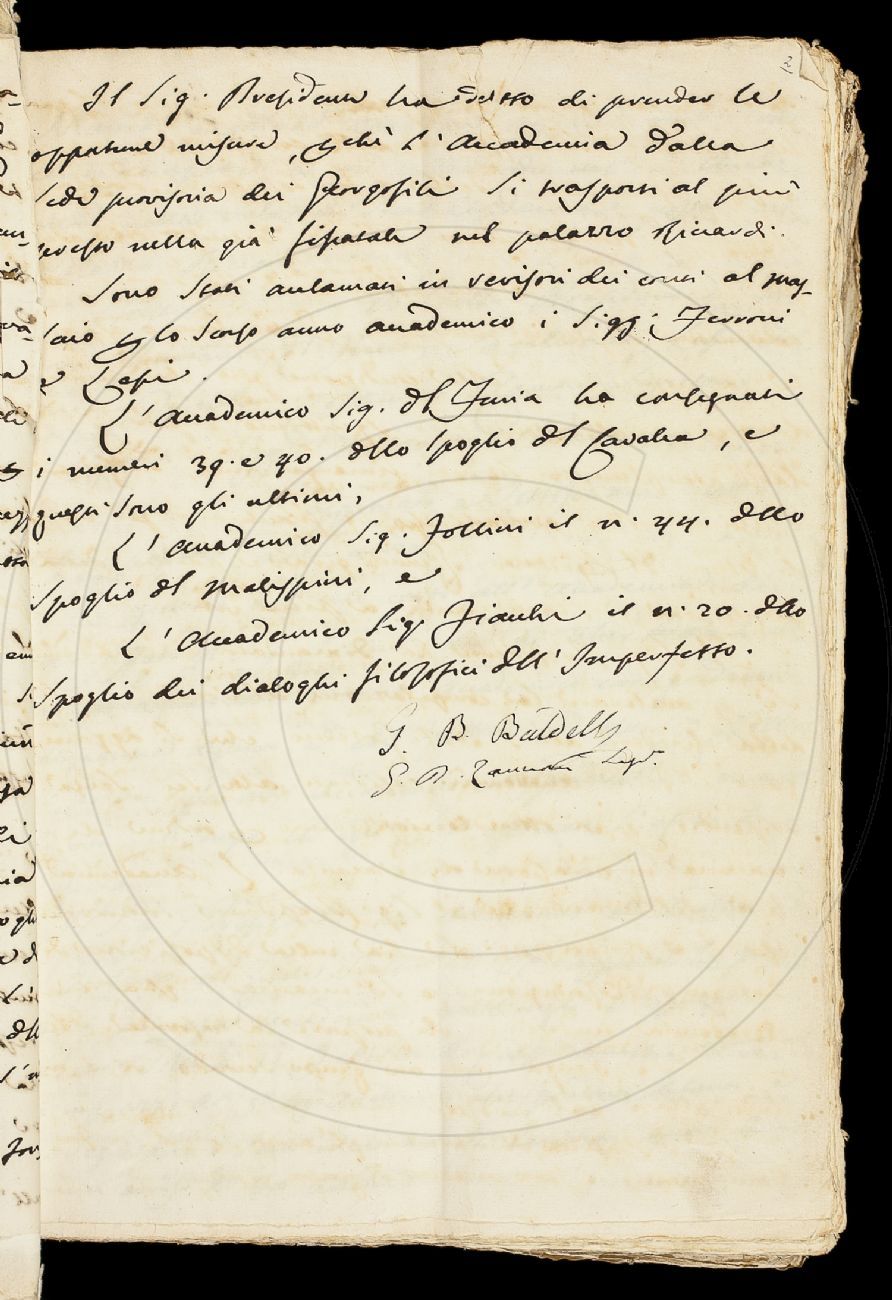 2
Il Sig. Presidente ha detto di prender le
opportune misure, perchè l'Accademia dalla
Sede provisoria dei Georgofili si trasporti al più
presto nella già fissatale nel palazzo Riccardi.
Sono stati acclamati in revisori dei conti al Mas-
saio per lo scorso anno accademico i Sigg. Ferroni
e Lessi.
L'Accademico Sig. del Furia ha consegnati
i numeri 39. e 40. dello Spoglio del Cavalca, e
questi sono gli ultimi,
L'Accademico Sig. Follini il n. 44. dello
Spoglio del Malispini, e
L'Accademico Sig. Fiacchi il n. 20. dello
Spoglio dei dialoghi filosofici dell'Imperfetto.
G. B. Baldelli
G. B. Zannoni Seg.